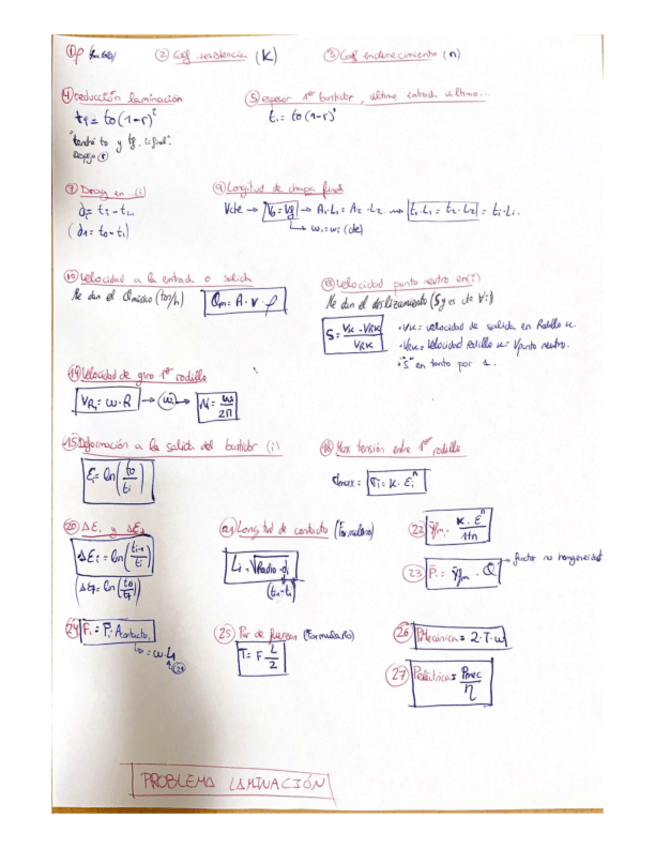 ① ρ
② Coef. resistencia (K)
③ Coef endurecimiento (n)
④ reducción laminación
tf = to(1-r)^i
"tendré to y tf. i=final".
Despejo (r)
⑤ espesor 1er bastidor, última entrada último...
ti = to(1-r)^i
⑦ Draog en...(i)
di = ti-1 - ti
(d1 = to - t1)
⑨ Longitud de chapa final
Vcte → Vo = Vf → A1·L1 = A2·L2 → t1·L1 = t2·L2 = ti·Li.
↳ wi = wi (cte)
⑩ velocidad a la entrada o salida
Me dan el Qmásico (ton/h) Qm = A·V·ρ
⑬ velocidad punto neutro en (i)
Me dan el deslizamiento (S y es de Vi)
S = (VK - VRK)/VRK
• VK = velocidad de salida en Rodillo K.
• VRK = Velocidad Rodillo K = Vpunto neutro.
• "S" en tanto por 1.
⑭ Velocidad de giro 1er rodillo
VR1 = ω·R → ω1 → N1 = ω/2π
⑮ Deformación a la salida del bastidor (i)
Ei = ln(to/ti)
⑱ Max tensión entre 1er rodillo
σmax = σi = K·Ei^n
⑳ ΔEi y ΔE7
ΔEi = ln(ti-1/ti)
(ΔE7 = ln(t6/t7))
㉑ Longitud de contacto (Formulario)
Li = √(Radio·di)
(ti-1-ti)
㉒ Ȳfm1 = K·E^n/(1+n)
㉓ Pi = Ȳfm·Q → factor no homogeneidad
㉔ Fi = Pi·Acontacto.
↳ = ω·Li
(21)
㉕ Par de fuerzas (Formulario)
T = F L/2
㉖ PMecánica = 2·T·ω
㉗ Peléctrica = Pmec/η
PROBLEMA LAMINACIÓN